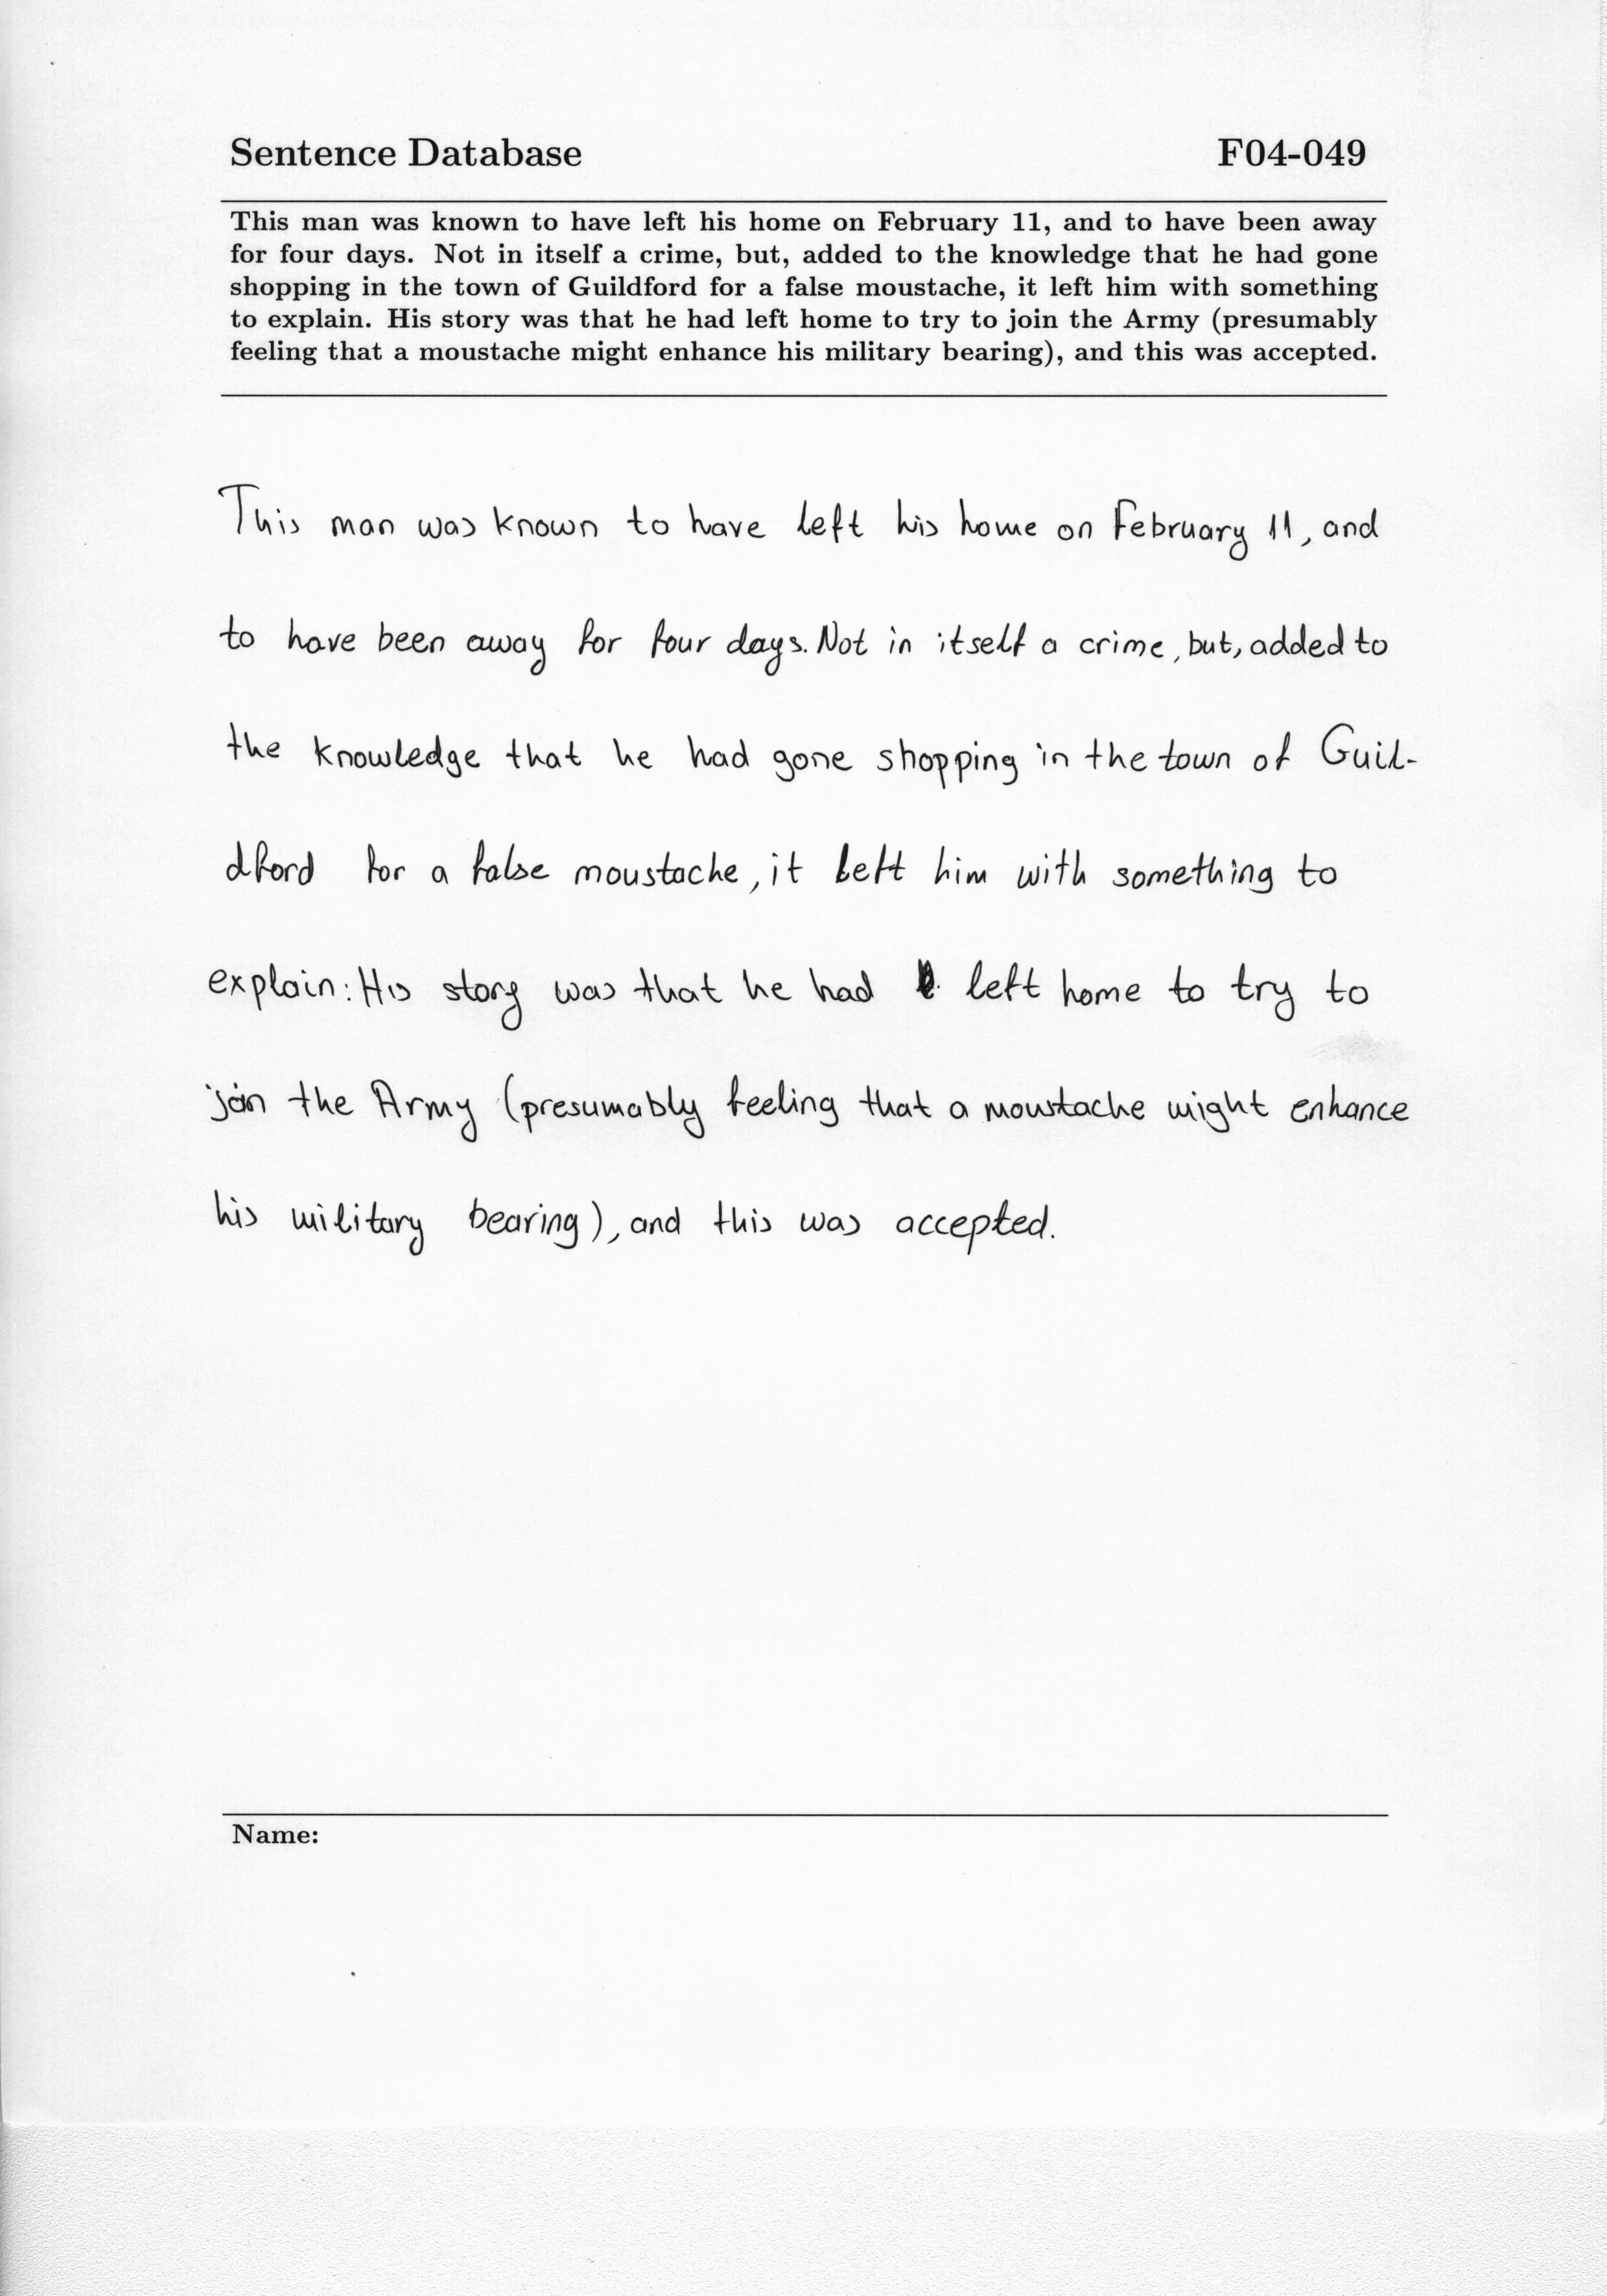 Sentence Database F04-049
This man was known to have left his home on February 11, and to have been away
for four days. Not in itself a crime, but, added to the knowledge that he had gone
shopping in the town of Guildford for a false moustache, it left him with something
to explain. His story was that he had left home to try to join the Army (presumably
feeling that a moustache might enhance his military bearing), and this was accepted.
This man was known to have left his home on February 11, and
to have been away for four days. Not in itself a crime, but, added to
the knowledge that he had gone shopping in the town of Guil-
dford for a false moustache, it left him with something to
explain: His story was that he had left home to try to
join the Army (presumably feeling that a moustache might enhance
his military bearing), and this was accepted.
Name: